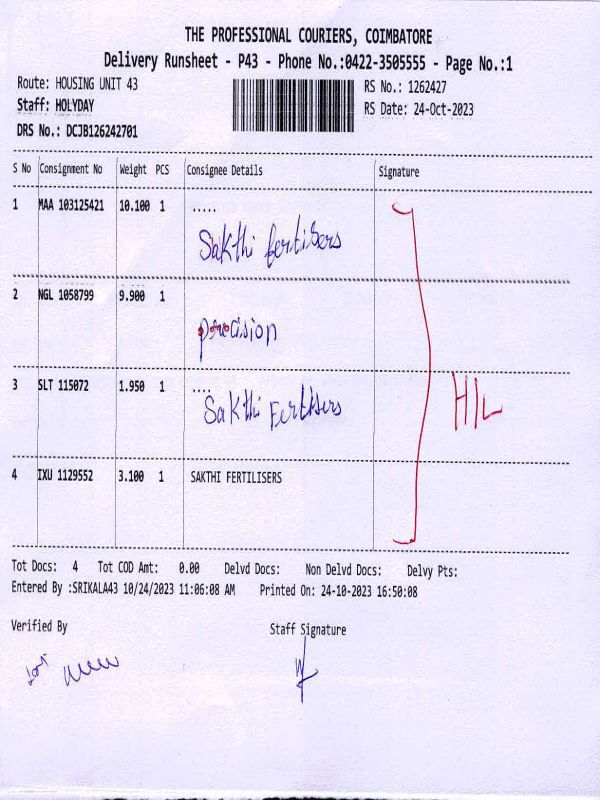 THE PROFESSIONAL COURIERS, COIMBATORE
Delivery Runsheet - P43 - Phone No.:0422-3505555 - Page No.:1
Route: HOUSING UNIT 43
RS No.: 1262427
Staff: HOLYDAY
RS Date: 24-Oct-2023
DRS No.: DCJB126242701
S No Consignment No Weight PCS Consignee Details Signature
1 MAA 103125421 10.100 1 .....
Sakthi fertilisers
2 NGL 1058799 9.900 1
precision
3 SLT 115072 1.950 1 ....
Sakthi Fertilisers
HIL
4 IXU 1129552 3.100 1 SAKTHI FERTILISERS
Tot Docs: 4 Tot COD Amt: 0.00 Delvd Docs: Non Delvd Docs: Delvy Pts:
Entered By :SRIKALA43 10/24/2023 11:06:08 AM Printed On: 24-10-2023 16:50:08
Verified By Staff Signature